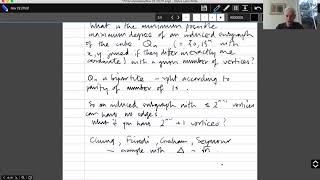 What is the minimum possible
maximum degree of an induced subgraph
of the cube Qn (= {0,1}ⁿ with
x,y joined if they differ in exactly one
coordinate) with a given number of vertices?
Qn is bipartite - split according to
parity of number of 1s.
So an induced subgraph with ≤ 2ⁿ⁻¹ vertices
can have no edges.
What if you have 2ⁿ⁻¹+1 vertices?
Chung, Füredi, Graham, Seymour
- example with Δ ~ √n